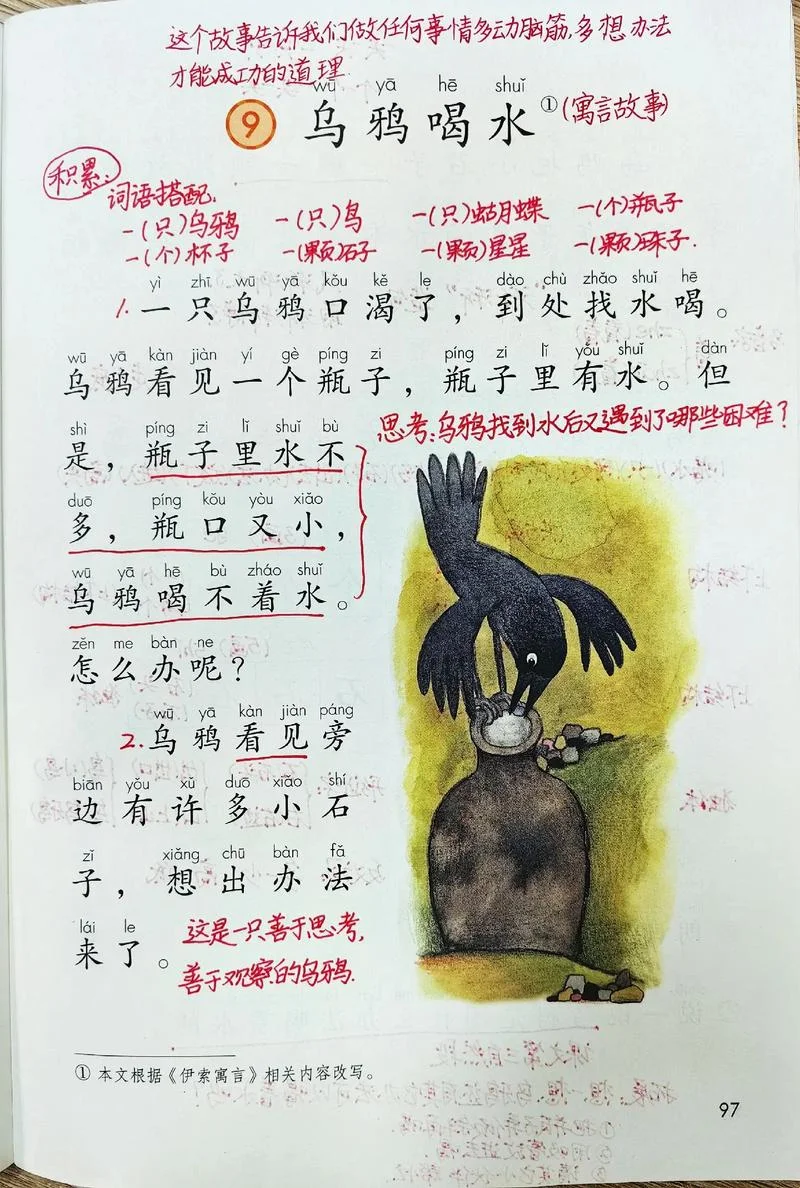 这个故事告诉我们做任何事情多动脑筋,多想办法
才能成功的道理
wū yā hē shuǐ
9 乌鸦喝水①(寓言故事)
积累:
词语搭配.
一(只)乌鸦 一(只)鸟 一(只)蝴蝶 一(个)瓶子
一(个)杯子 一(颗)石子 一(颗)星星 一(颗)珠子.
yì zhī wū yā kǒu kě le dào chù zhǎo shuǐ hē
1.一只乌鸦口渴了,到处找水喝。
wū yā kàn jiàn yí gè píng zi píng zi lǐ yǒu shuǐ dàn
乌鸦看见一个瓶子,瓶子里有水。但
shì píng zi lǐ shuǐ bù
是,瓶子里水不
思考:乌鸦找到水后又遇到了哪些困难?
duō píng kǒu yòu xiǎo
多,瓶口又小,
wū yā hē bù zháo shuǐ
乌鸦喝不着水。
zěn me bàn ne
怎么办呢?
wū yā kàn jiàn páng
2.乌鸦看见旁
biān yǒu xǔ duō xiǎo shí
边有许多小石
zǐ xiǎng chū bàn fǎ
子,想出办法
lái le
来了。
这是一只善于思考,
善于观察的乌鸦.
① 本文根据《伊索寓言》相关内容改写。
97